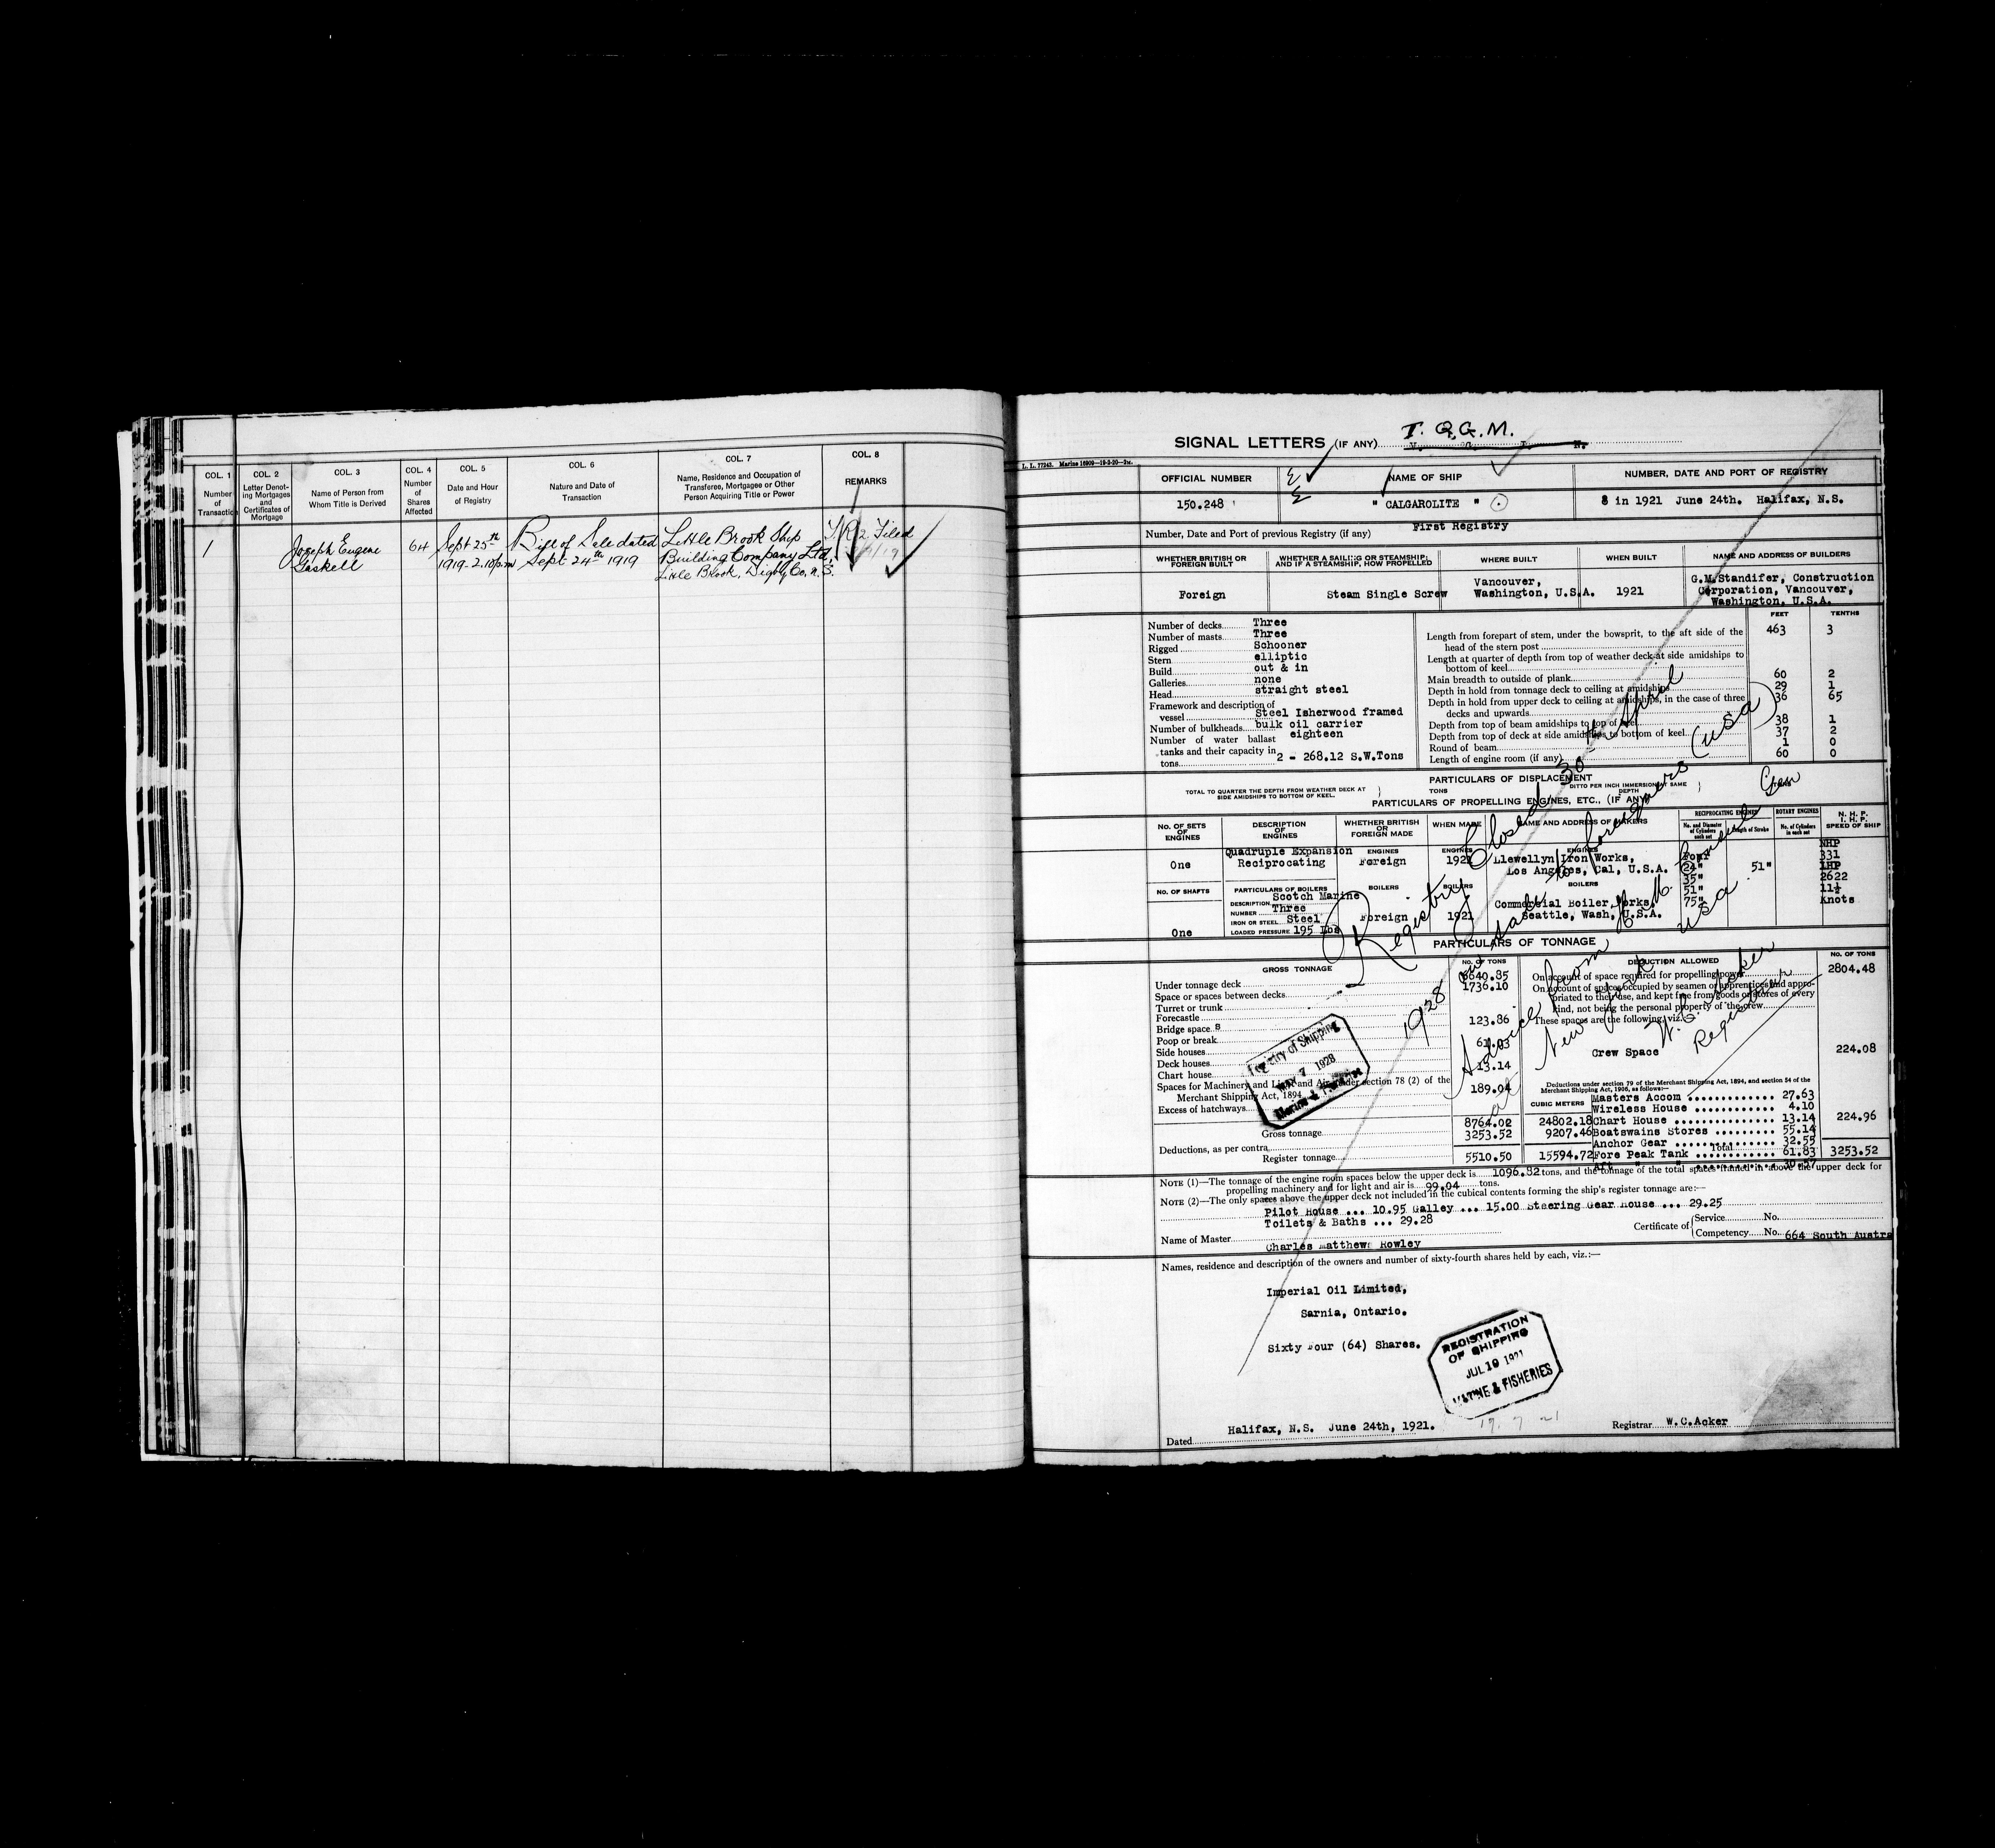 COL. 1
Number
of
Transaction
COL. 2
Letter Denot-
ing Mortgages
and
Certificates of
Mortgage
COL. 3
Name of Person from
Whom Title is Derived
COL. 4
Number
of
Shares
Affected
COL. 5
Date and Hour
of Registry
COL. 6
Nature and Date of
Transaction
COL. 7
Name, Residence and Occupation of
Transferee, Mortgagee or Other
Person Acquiring Title or Power
COL. 8
REMARKS
1
Joseph Eugene
Gaskell
64
Sept 25th
1919-2.10p.m
Bill of Sale dated
Sept 24th 1919
Little Brook Ship
Building Company Ltd,
Little Brook, Digby Co, N.S.
Filed
SIGNAL LETTERS (IF ANY) T. Q.G.M.
L. L. 77243. Marine 16909—19-3-20—2M.
OFFICIAL NUMBER
NAME OF SHIP
NUMBER, DATE AND PORT OF REGISTRY
150.248
" CALGAROLITE "
8 in 1921 June 24th. Halifax, N.S.
Number, Date and Port of previous Registry (if any) First Registry
WHETHER BRITISH OR
FOREIGN BUILT
WHETHER A SAILING OR STEAMSHIP;
AND IF A STEAMSHIP, HOW PROPELLED
WHERE BUILT
WHEN BUILT
NAME AND ADDRESS OF BUILDERS
Foreign
Steam Single Screw
Vancouver,
Washington, U.S.A.
1921
G.M.Standifer, Construction
Corporation, Vancouver,
Washington, U.S.A.
Number of decks Three
Number of masts Three
Rigged Schooner
Stern elliptic
Build out & in
Galleries none
Head straight steel
Framework and description of
vessel Steel Isherwood framed
bulk oil carrier
Number of bulkheads eighteen
Number of water ballast
tanks and their capacity in
tons 2 - 268.12 S.W.Tons
FEET TENTHS
Length from forepart of stem, under the bowsprit, to the aft side of the
head of the stern post 463 3
Length at quarter of depth from top of weather deck at side amidships to
bottom of keel
Main breadth to outside of plank 60 2
Depth in hold from tonnage deck to ceiling at amidships 29 1
Depth in hold from upper deck to ceiling at amidships, in the case of three
decks and upwards 36 65
Depth from top of beam amidships to top of keel 38 1
Depth from top of deck at side amidships to bottom of keel 37 2
Round of beam 1 0
Length of engine room (if any) 60 0
PARTICULARS OF DISPLACEMENT
TOTAL TO QUARTER THE DEPTH FROM WEATHER DECK AT
SIDE AMIDSHIPS TO BOTTOM OF KEEL.
TONS
DITTO PER INCH IMMERSION AT SAME
DEPTH
PARTICULARS OF PROPELLING ENGINES, ETC., (IF ANY)
NO. OF SETS
OF
ENGINES
DESCRIPTION
OF
ENGINES
WHETHER BRITISH
OR
FOREIGN MADE
WHEN MADE
NAME AND ADDRESS OF MAKERS
RECIPROCATING ENGINES
No. and Diameter
of Cylinders
each set
Length of Stroke
ROTARY ENGINES
No. of Cylinders
in each set
N. H. P.
I. H. P.
SPEED OF SHIP
One
Quadruple Expansion
Reciprocating
ENGINES
Foreign
ENGINES
1921
ENGINES
Llewellyn Iron Works,
Los Angeles, Cal, U.S.A.
Four
24"
35"
51"
75"
51"
NHP
331
IHP
2622
11½
Knots
NO. OF SHAFTS
One
PARTICULARS OF BOILERS
DESCRIPTION Scotch Marine
NUMBER Three
IRON OR STEEL Steel
LOADED PRESSURE 195 Lbs
BOILERS
Foreign
BOILERS
1921
BOILERS
Commercial Boiler Works,
Seattle, Wash, U.S.A.
PARTICULARS OF TONNAGE
GROSS TONNAGE
NO. OF TONS
Under tonnage deck 6640.85
Space or spaces between decks 1736.10
Turret or trunk
Forecastle
Bridge space s 123.86
Poop or break
Side houses 61.03
Deck houses
Chart house 13.14
Spaces for Machinery and Light and Air under section 78 (2) of the
Merchant Shipping Act, 1894 189.04
Excess of hatchways
Gross tonnage 8764.02
Deductions, as per contra 3253.52
Register tonnage 5510.50
CUBIC METERS
24802.18
9207.46
15594.72
DEDUCTION ALLOWED
NO. OF TONS
On account of space required for propelling power 2804.48
On account of spaces occupied by seamen or apprentices and appro-
priated to their use, and kept free from goods or stores of every
kind, not being the personal property of the crew
These spaces are the following, viz.:
Crew Space 224.08
Deductions under section 79 of the Merchant Shipping Act, 1894, and section 54 of the
Merchant Shipping Act, 1906, as follows:—
Masters Accom 27.63
Wireless House 4.10
Chart House 13.14
Boatswains Stores 55.14
Anchor Gear 32.55
Fore Peak Tank 61.83
Aft " " 30.57
224.96
Total 3253.52
NOTE (1)—The tonnage of the engine room spaces below the upper deck is 1096.82 tons, and the tonnage of the total spaces framed in above the upper deck for
propelling machinery and for light and air is 99.04 tons.
NOTE (2)—The only spaces above the upper deck not included in the cubical contents forming the ship's register tonnage are:—
Pilot House ... 10.95 Galley ... 15.00 Steering Gear House ... 29.25
Toilets & Baths ... 29.28
Name of Master Charles Matthew Rowley
Certificate of Service No.
Competency No. 664 South Austra
Names, residence and description of the owners and number of sixty-fourth shares held by each, viz.:—
Imperial Oil Limited,
Sarnia, Ontario.
Sixty Four (64) Shares.
Dated Halifax, N.S. June 24th, 1921.
Registrar W.C.Acker
Registry Closed 30th April
1928 on sale to foreigners (USA)
Advice from H.B.M. Consul Gen
at New York USA
W.C. Acker
Registrar
Registry of Shipping
MAY 7 1928
Marine & Fisheries
REGISTRATION
OF SHIPPING
JUL 19 1921
MARINE & FISHERIES
19. 7 -21